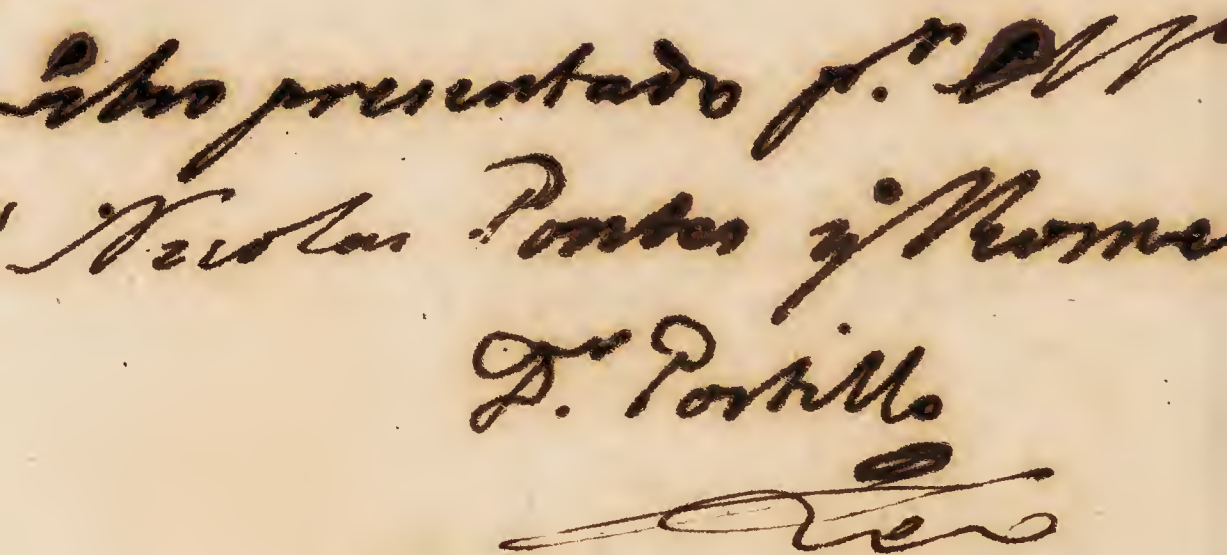 Libro presentado p.r el
Nicolas Pontes y Rome
D.r Portillo